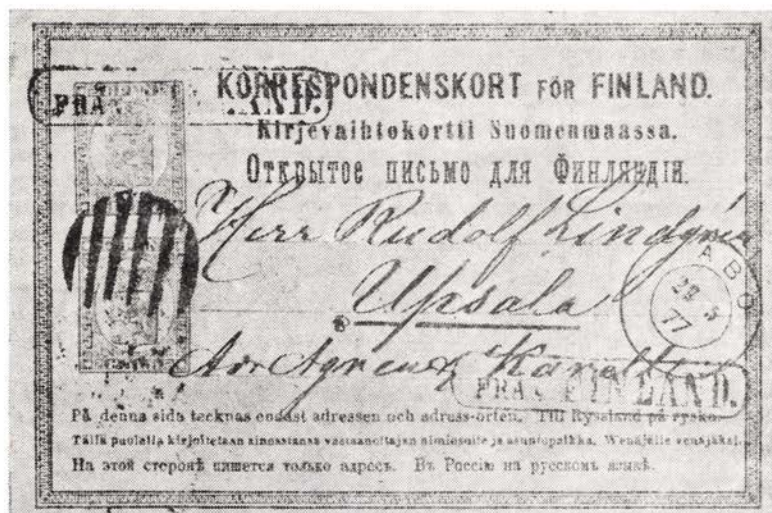 KORRESPONDENSKORT FÖR FINLAND.
FRÅN FINLAND.
Kirjevaihtokortti Suomenmaassa.
Открытое письмо для Финляндіи.
Herr Rudolf Lindgrén
ABO
Upsala
77
FRÅN FINLAND.
På denna sida tecknas endast adressen och adress-orten. Till Ryssland på ryska.
Tälla puolella kirjoitetaan ainoastansa vastaanottajan nimi ja asuntopaikka. Wenäjälle venäjäksi.
На этой сторонѣ пишется только адресъ. Въ Россію на русскомъ языкѣ.